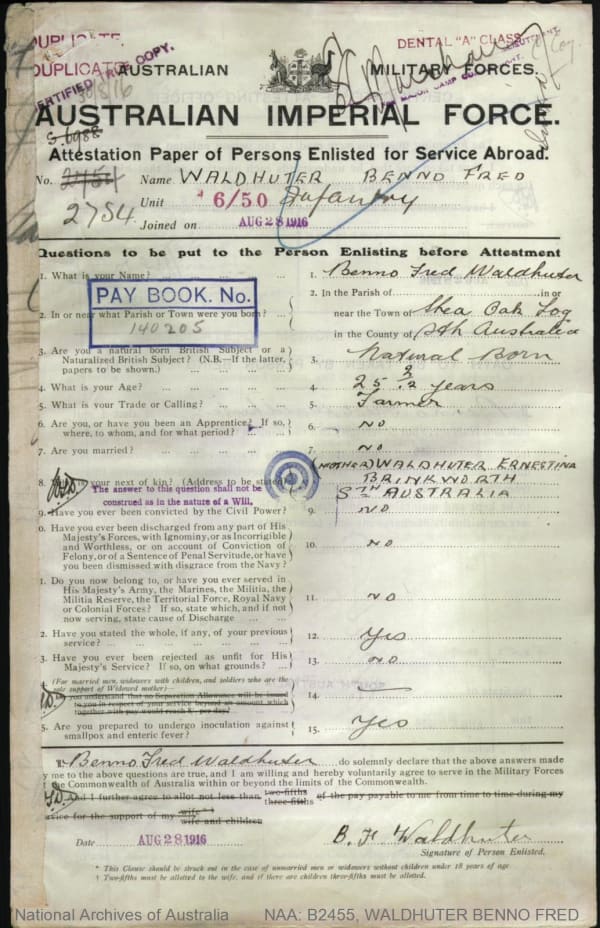 DUPLICATE.
DENTAL "A" CLASS
DUPLICATE
CERTIFIED TRUE COPY.
30/8/16
LIEUTENANT,
CAMP
AUSTRALIAN MILITARY FORCES.
AUSTRALIAN IMPERIAL FORCE.
S 6988
Attestation Paper of Persons Enlisted for Service Abroad.
No. 2454 Name WALDHUTER BENNO FRED
2754 Unit 6/50 Infantry
Joined on AUG 28 1916
Questions to be put to the Person Enlisting before Attestment
1. What is your Name? ... 1. Benno Fred Waldhuter
PAY BOOK. No.
140205
2. In or near what Parish or Town were you born? ... 2. In the Parish of in or
near the Town of Shea Oak Log
in the County of Sth Australia
3. Are you a natural born British Subject or a
Naturalized British Subject? (N.B.—If the latter,
papers to be shown.) 3. Natural Born
4. What is your Age? ... 4. 25 3/12 years
5. What is your Trade or Calling? ... 5. Farmer
6. Are you, or have you been an Apprentice? If so,
where, to whom, and for what period? ... 6. NO
7. Are you married? ... 7. NO
8. is your next of kin? (Address to be stated) 8. (MOTHER) WALDHUTER ERNESTINA
BRINKWORTH
STH AUSTRALIA
The answer to this question shall not be
construed as in the nature of a Will.
9. Have you ever been convicted by the Civil Power? 9. NO
0. Have you ever been discharged from any part of His
Majesty's Forces, with Ignominy, or as Incorrigible
and Worthless, or on account of Conviction of
Felony, or of a Sentence of Penal Servitude, or have
you been dismissed with disgrace from the Navy? 10. NO
1. Do you now belong to, or have you ever served in
His Majesty's Army, the Marines, the Militia, the
Militia Reserve, the Territorial Force, Royal Navy
or Colonial Forces? If so, state which, and if not
now serving, state cause of Discharge ... 11. NO
2. Have you stated the whole, if any, of your previous
service? ... 12. Yes
3. Have you ever been rejected as unfit for His
Majesty's Service? If so, on what grounds? ... 13. NO
(For married men, widowers with children, and soldiers who are the
sole support of Widowed mother)—
you understand that no Separation Allowance will be issued
to you in respect of your service beyond an amount which
together with pay would reach 14. —
5. Are you prepared to undergo inoculation against
smallpox and enteric fever? 15. Yes
Benno Fred Waldhuter do solemnly declare that the above answers made
y me to the above questions are true, and I am willing and hereby voluntarily agree to serve in the Military Forces
the Commonwealth of Australia within or beyond the limits of the Commonwealth.
I further agree to allot not less than two-fifths three-fifths of the pay payable to me from time to time during my
vice for the support of my wife wife and children
Date AUG 28 1916 B. F Waldhuter
Signature of Person Enlisted.
* This Clause should be struck out in the case of unmarried men or widowers without children under 18 years of age
† Two-fifths must be allotted to the wife, and if there are children three-fifths must be allotted.
National Archives of Australia NAA: B2455, WALDHUTER BENNO FRED